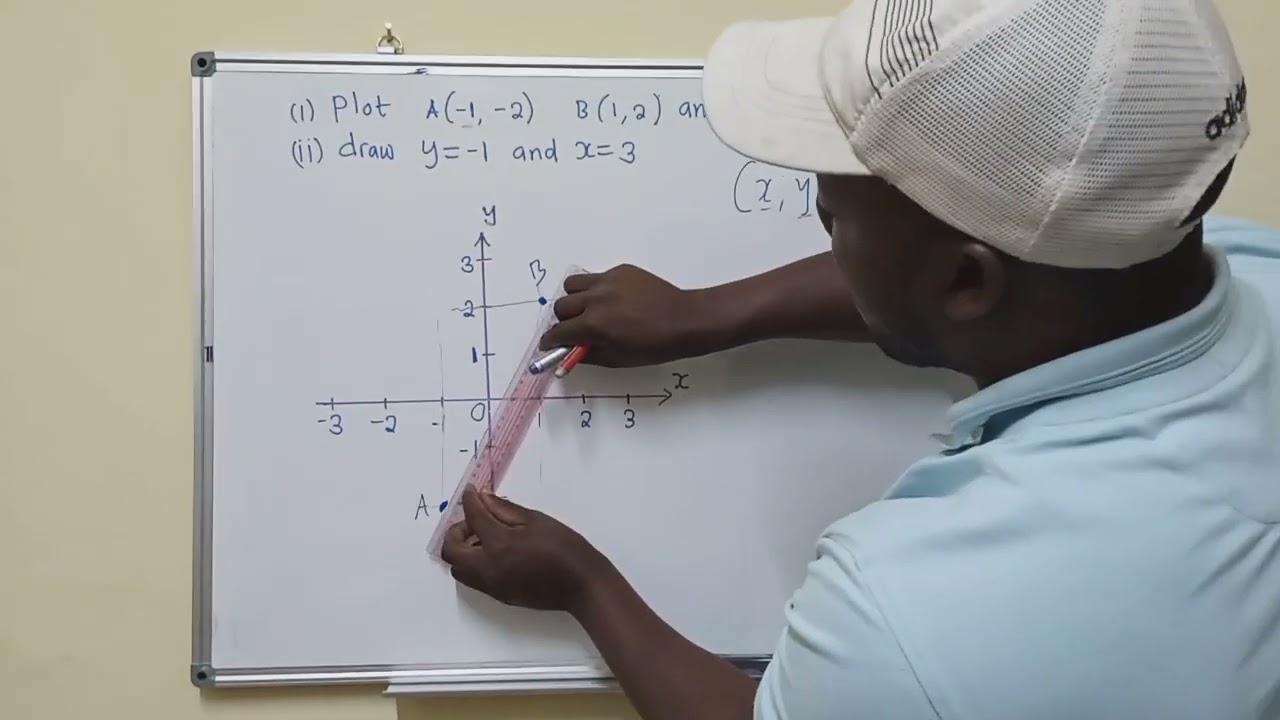 (i) Plot A(-1, -2) B(1, 2) an
(ii) draw y=-1 and x=3
(x, y
adidas
y
3
B
2
1
x
-3 -2 -1 0 1 2 3
-1
A